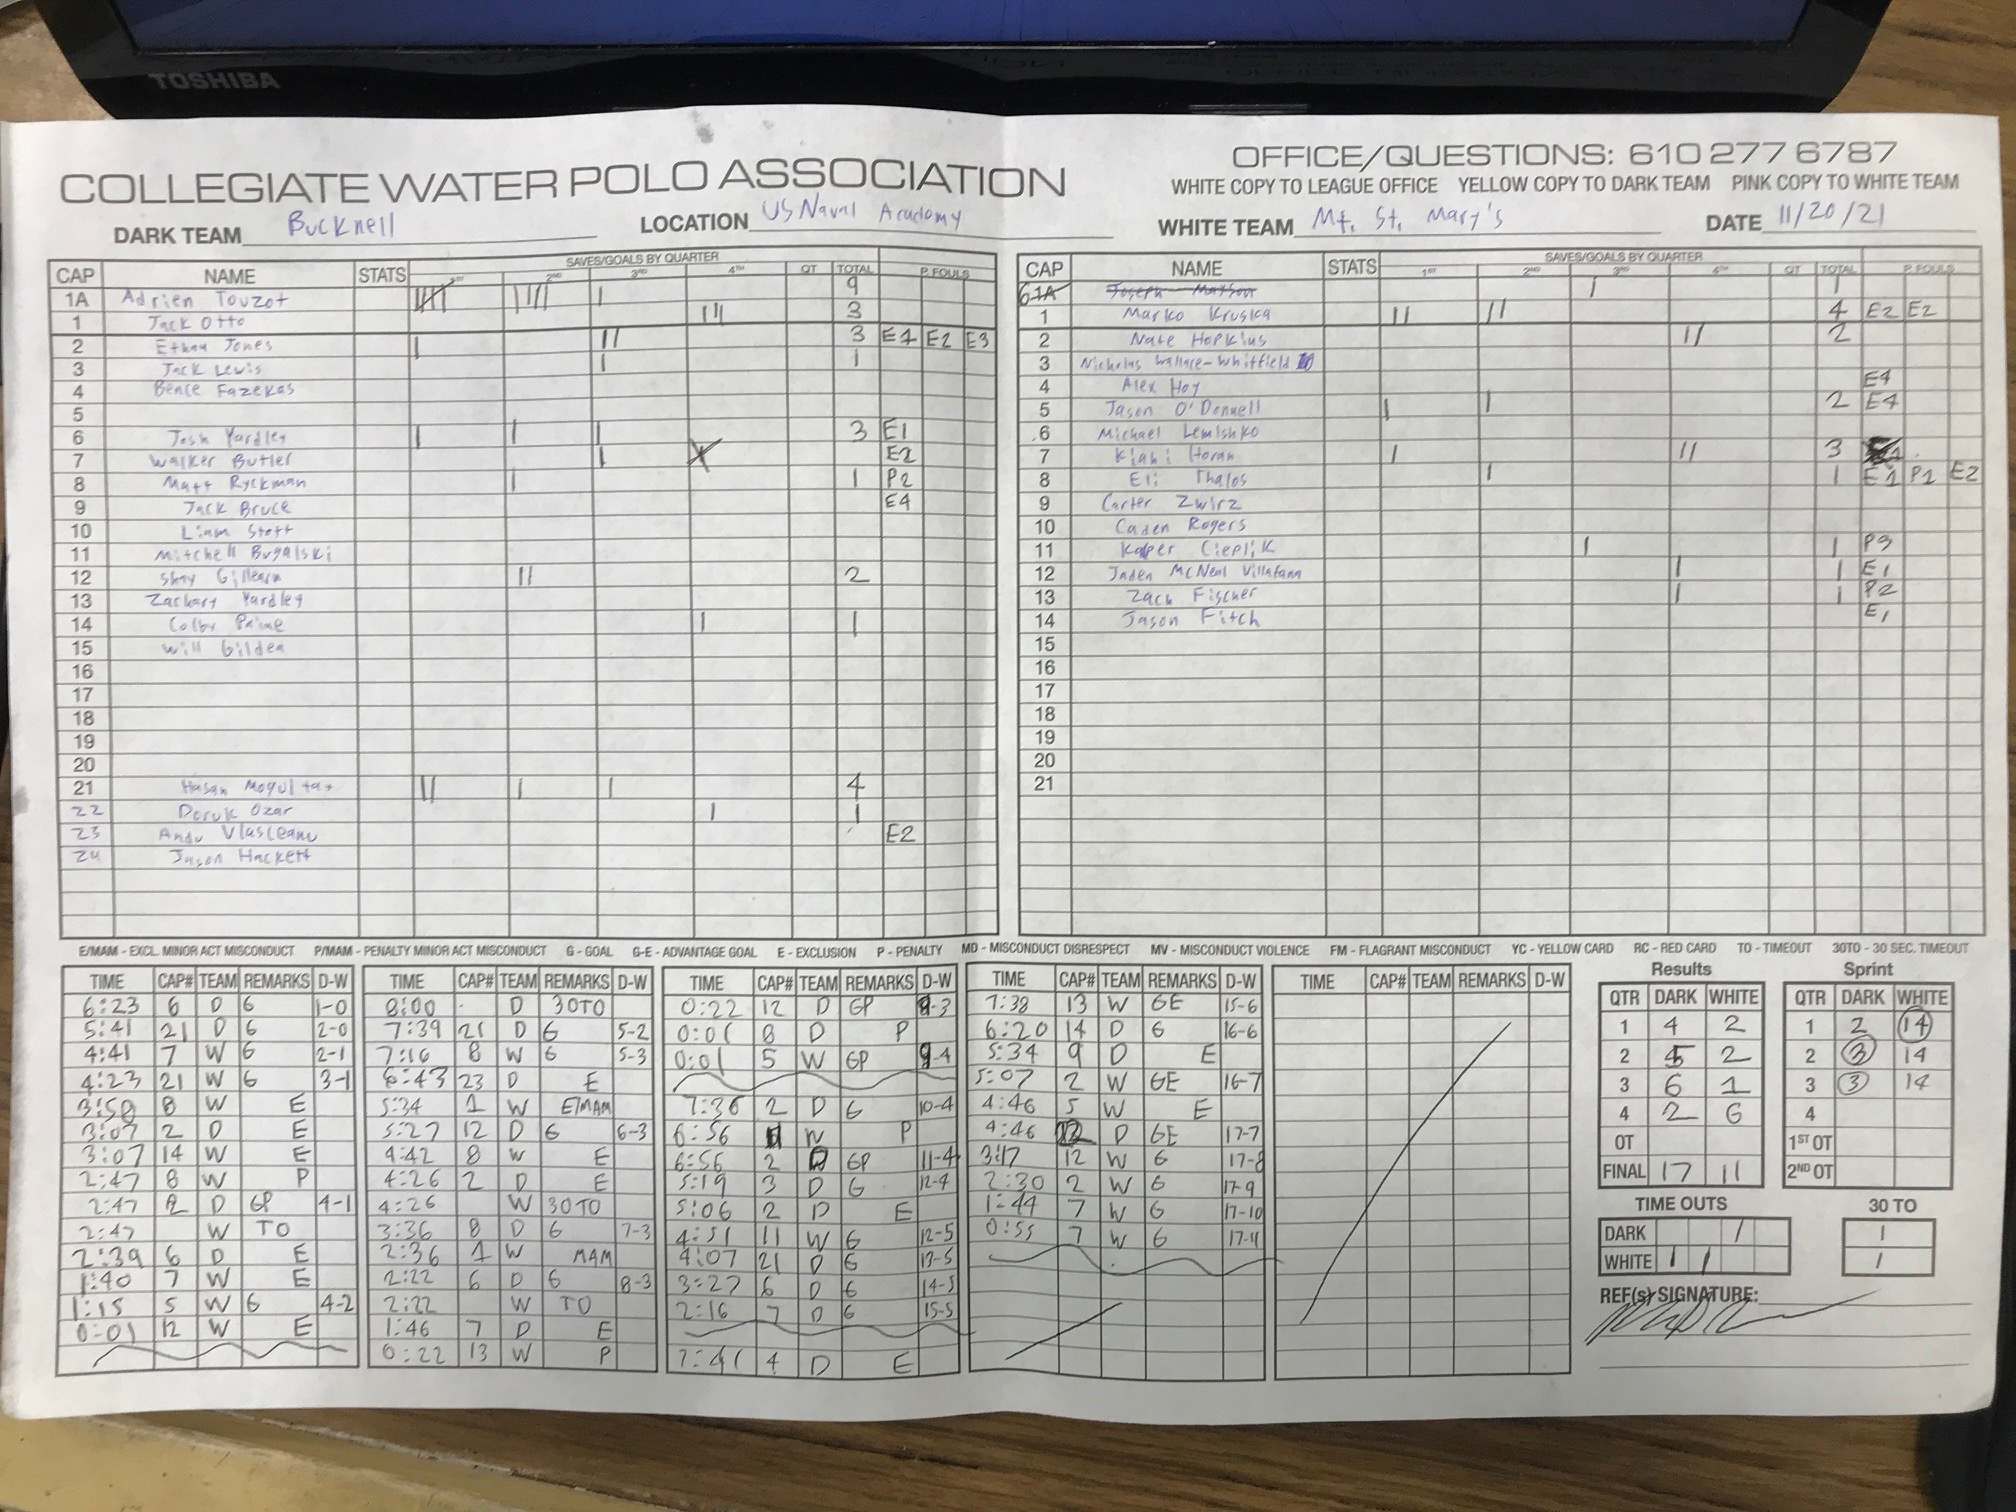 TOSHIBA
COLLEGIATE WATER POLO ASSOCIATION
OFFICE/QUESTIONS: 610 277 6787
WHITE COPY TO LEAGUE OFFICE YELLOW COPY TO DARK TEAM PINK COPY TO WHITE TEAM
DARK TEAM Bucknell LOCATION US Naval Academy WHITE TEAM Mt. St. Mary's DATE 11/20/21
SAVES/GOALS BY QUARTER
CAP NAME STATS 1ST 2ND 3RD 4TH OT TOTAL P. FOULS
1A Adrien Touzot 9
1 Jack Otto 3
2 Ethan Jones 3 E1 E2 E3
3 Jack Lewis 1
4 Bence Fazekas
5
6 Josh Yardley 3 E1
7 Walker Butler E2
8 Matt Ryckman 1 P2
9 Jack Bruce E4
10 Liam Stott
11 Mitchell Bugalski
12 Shay Gillearn 2
13 Zachary Yardley
14 Colby Paine 1
15 Will Gildea
16
17
18
19
20
21 Hasan Mogultay 4
22 Doruk Ozar 1
23 Andu Vlasceanu E2
24 Jason Hackett
SAVES/GOALS BY QUARTER
CAP NAME STATS 1ST 2ND 3RD 4TH OT TOTAL P. FOULS
1A 1
1 Marko Kruska 4 E2 E2
2 Nate Hopkins 2
3 Nicholas Wallace-Whitfield
4 Alex Hoy E4
5 Jason O'Donnell 2 E4
6 Michael Lemishko
7 Kiahi Horan 3
8 Eli Thalos 1 E1 P1 E2
9 Carter Zwirz
10 Caden Rogers
11 Kacper Cieplik 1 P3
12 Jaden McNeal Villafana 1 E1
13 Zach Fischer 1 P2
14 Jason Fitch E1
15
16
17
18
19
20
21
E/MAM - EXCL. MINOR ACT MISCONDUCT P/MAM - PENALTY MINOR ACT MISCONDUCT G - GOAL G-E - ADVANTAGE GOAL E - EXCLUSION P - PENALTY MD - MISCONDUCT DISRESPECT MV - MISCONDUCT VIOLENCE FM - FLAGRANT MISCONDUCT YC - YELLOW CARD RC - RED CARD TO - TIMEOUT 30TO - 30 SEC. TIMEOUT
TIME CAP# TEAM REMARKS D-W
6:23 6 D G 1-0
5:41 21 D G 2-0
4:41 7 W G 2-1
4:23 21 W G 3-1
3:50 8 W E
3:07 2 D E
3:07 14 W E
2:47 8 W P
2:47 2 D GP 4-1
2:47 W TO
2:39 6 D E
1:40 7 W E
1:15 5 W G 4-2
0:01 12 W E
TIME CAP# TEAM REMARKS D-W
8:00 D 30TO
7:39 21 D G 5-2
7:16 8 W G 5-3
6:43 23 D E
5:34 1 W E/MAM
5:27 12 D G 6-3
4:42 8 W E
4:26 2 D E
4:26 W 30TO
3:36 8 D G 7-3
2:36 1 W MAM
2:22 6 D G 8-3
2:22 W TO
1:46 7 D E
0:22 13 W P
TIME CAP# TEAM REMARKS D-W
0:22 12 D GP 9-3
0:01 8 D P
0:01 5 W GP 9-4
7:36 2 D G 10-4
6:56 W P
6:56 2 D GP 11-4
5:19 3 D G 12-4
5:06 2 D E
4:51 11 W G 12-5
4:07 21 D G 13-5
3:27 6 D G 14-5
2:16 7 D G 15-5
7:41 4 D E
TIME CAP# TEAM REMARKS D-W
7:38 13 W GE 15-6
6:20 14 D G 16-6
5:34 9 D E
5:07 2 W GE 16-7
4:46 5 W E
4:46 22 D GE 17-7
3:17 12 W G 17-8
2:30 2 W G 17-9
1:44 7 W G 17-10
0:55 7 W G 17-11
TIME CAP# TEAM REMARKS D-W
Results
QTR DARK WHITE
1 4 2
2 5 2
3 6 1
4 2 6
OT
FINAL 17 11
Sprint
QTR DARK WHITE
1 2 14
2 3 14
3 3 14
4
1ST OT
2ND OT
TIME OUTS 30 TO
DARK / 1
WHITE / / 1
REF(s) SIGNATURE: